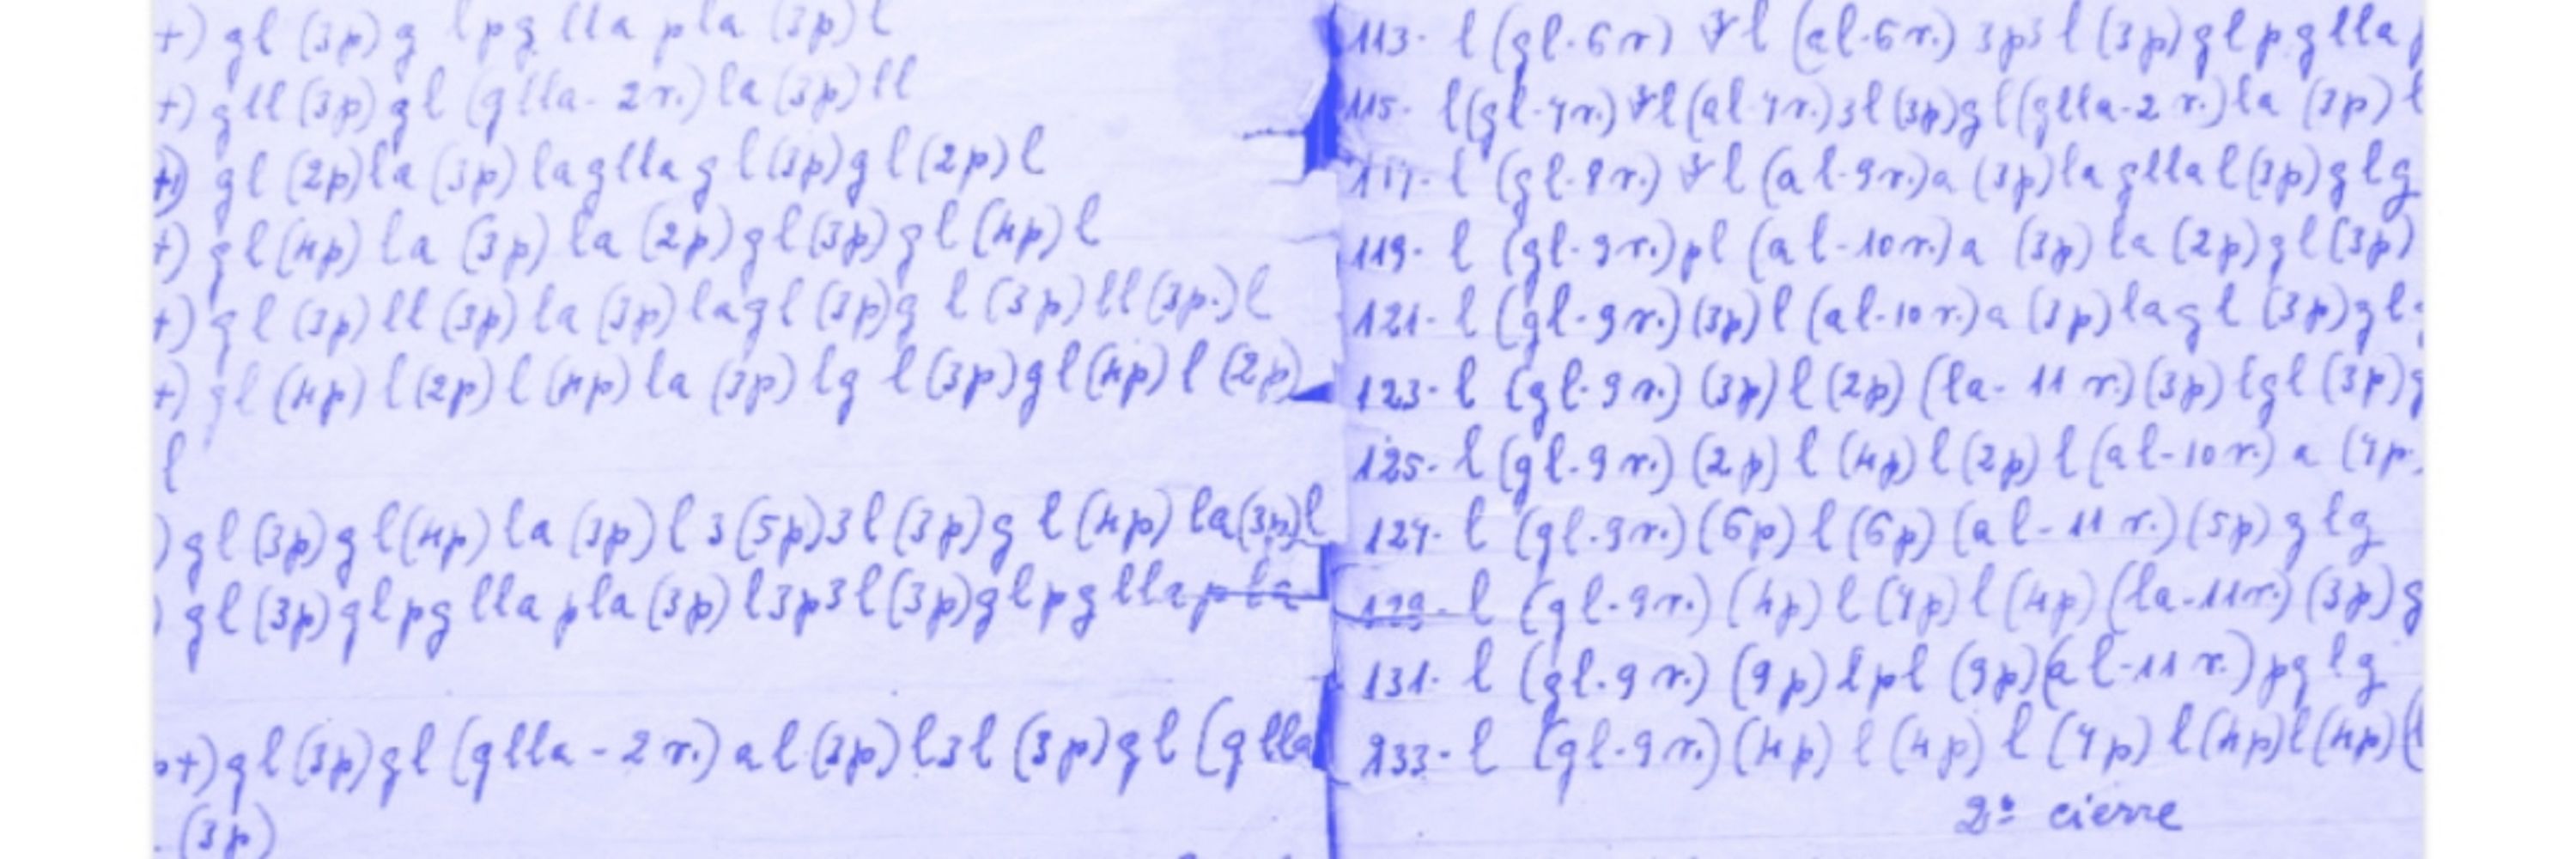 +) gl (3p) g lpg lla pla (3p) l
+) gll (3p) gl (glla - 2r.) la (3p) ll
+) gl (2p) la (3p) lagllag l (3p) gl (2p) l
+) gl (4p) la (3p) la (2p) gl (3p) gl (4p) l
+) gl (3p) ll (3p) la (3p) lagl (3p) g l (3p) ll (3p.) l
+) gl (4p) l (2p) l (4p) la (3p) lg l (3p) gl (4p) l (2p)
l
) gl (3p) gl (4p) la (3p) l 3 (5p) 3 l (3p) g l (4p) la (3p) l
) gl (3p) glpg lla pla (3p) l3p3l (3p) glpg lla p la
+) gl (3p) gl (glla - 2 r.) al (3p) l3l (3p) gl (glla
(3p)
113- l (gl-6r) l (al-6r.) 3p3 l (3p) gl p g lla
115- l (gl-7r.) l (al-7r.) 3l (3p) gl (glla-2r.) la (3p) l
117- l (gl-8r.) l (al-9r.) a (3p) la glla l (3p) glg
119- l (gl-9r.) pl (al-10r.) a (3p) la (2p) gl (3p)
121- l (gl-9r.) (3p) l (al-10r.) a (3p) lagl (3p) gl
123- l (gl-9r.) (3p) l (2p) (la-11r.) (3p) lgl (3p) g
125- l (gl-9r.) (2p) l (4p) l (2p) l (al-10r.) a (7p.
127- l (gl-9r.) (6p) l (6p) (al-11r.) (5p) glg
129- l (gl-9r.) (4p) l (7p) l (4p) (la-11r.) (3p) g
131- l (gl-9r.) (9p) lpl (9p) (al-11r.) pglg
133- l (gl-9r.) (4p) l (4p) l (7p) l (4p) l (4p) (
2º cierre